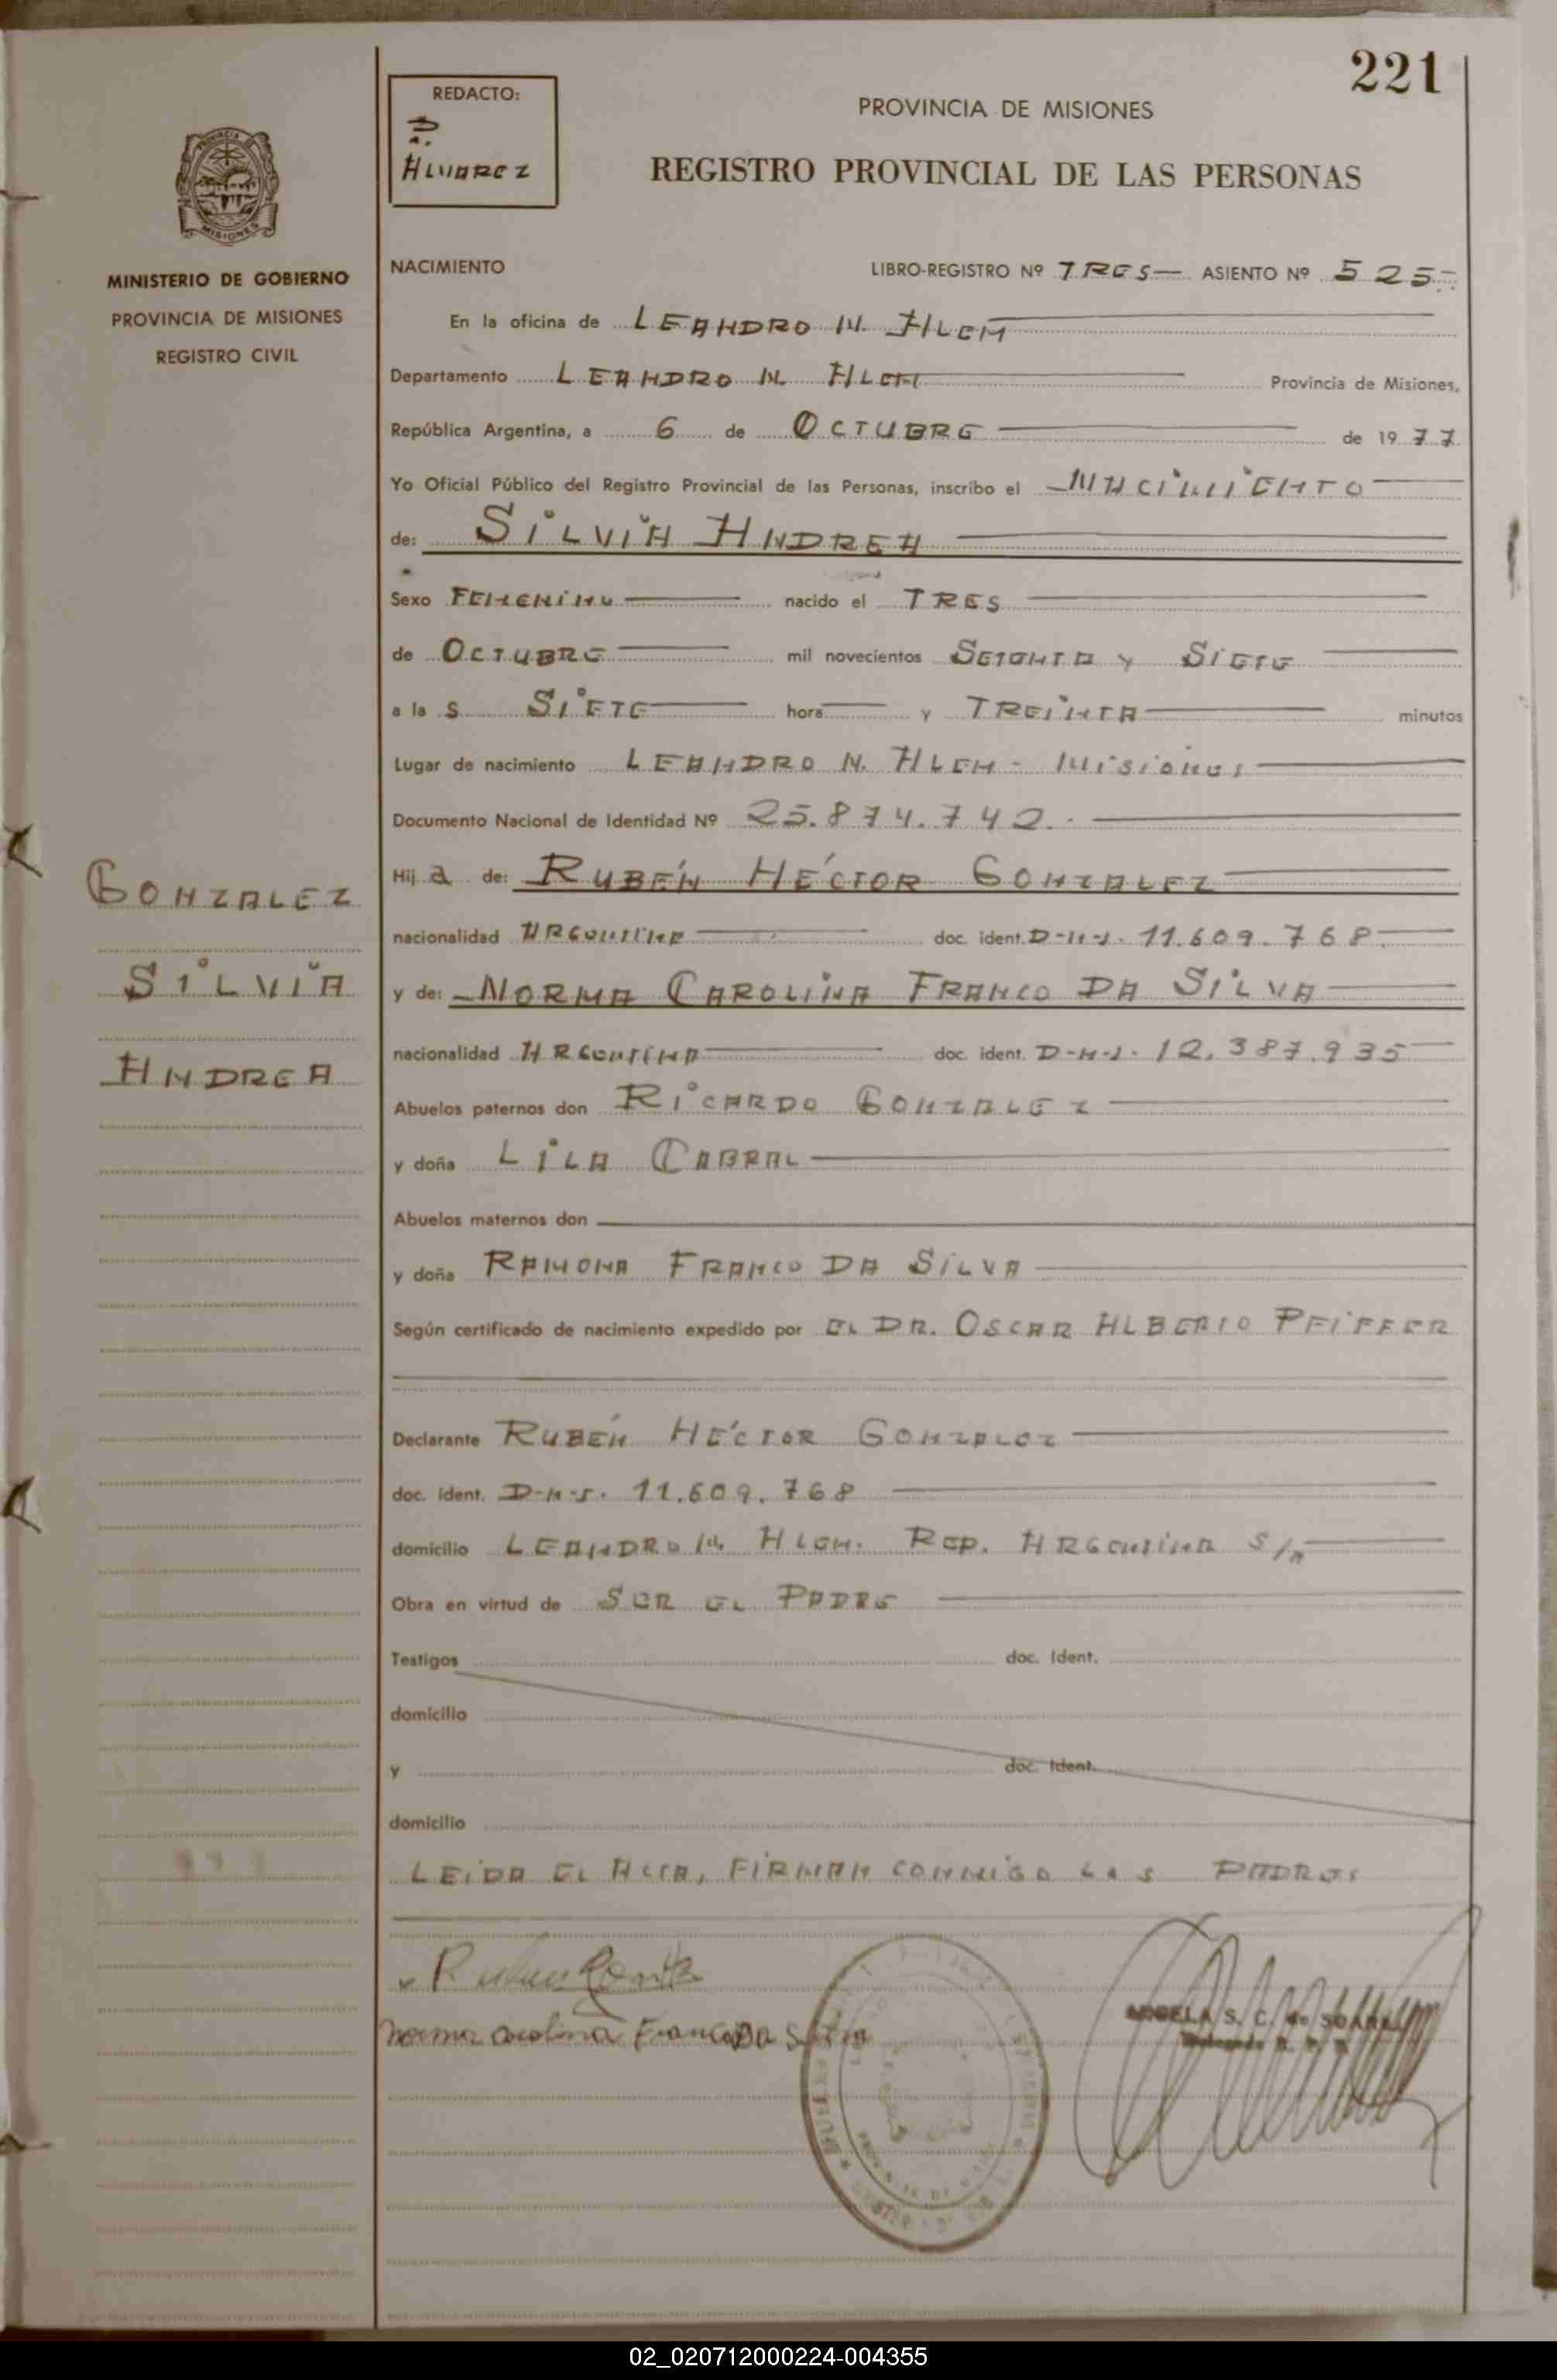 221
REDACTO:
P.
ALVAREZ
PROVINCIA DE MISIONES
REGISTRO PROVINCIAL DE LAS PERSONAS
MINISTERIO DE GOBIERNO
PROVINCIA DE MISIONES
REGISTRO CIVIL
NACIMIENTO
LIBRO-REGISTRO Nº TRES ASIENTO Nº 525
En la oficina de LEANDRO N. ALEM
Departamento LEANDRO N ALEM Provincia de Misiones,
República Argentina, a 6 de OCTUBRE de 1977
Yo Oficial Público del Registro Provincial de las Personas, inscribo el NACIMIENTO
de: SILVIA ANDREA
Sexo FEMENINO nacido el TRES
de OCTUBRE mil novecientos SETENTA Y SIETE
a la S SIETE hora y TREINTA minutos
Lugar de nacimiento LEANDRO N. ALEM - MISIONES
Documento Nacional de Identidad Nº 25.874.742.
Hij a de: RUBÉN HÉCTOR GONZALEZ
nacionalidad ARGENTINA doc. ident. D-N-I. 11.609.768
y de: NORMA CAROLINA FRANCO DA SILVA
nacionalidad ARGENTINA doc. ident. D-N-I. 12.387.935
Abuelos paternos don RICARDO GONZALEZ
y doña LILA CABRAL
Abuelos maternos don
y doña RAMONA FRANCO DA SILVA
Según certificado de nacimiento expedido por EL DR. OSCAR ALBERTO PFIFFER
Declarante RUBÉN HÉCTOR GONZALEZ
doc. ident. D-N-I. 11.609.768
domicilio LEANDRO N. ALEM. REP. ARGENTINA S/N
Obra en virtud de SER EL PADRE
Testigos doc. Ident.
domicilio
y doc. Ident.
domicilio
LEIDA EL ACTA, FIRMAN CONMIGO LOS PADRES
GONZALEZ
SILVIA
ANDREA
Norma Carolina Franco Da Silva
02_020712000224-004355